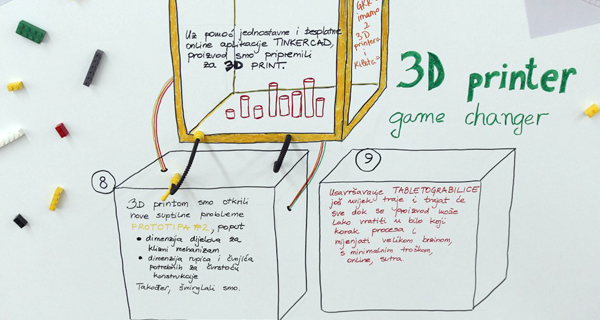 Uz pomoć jednostavne i besplatne
online aplikacije TINKERCAD,
proizvod smo pripremili
za 3D PRINT.
GKR
imamo
2
3D
printera
i
3D printer
game changer
8
3D printom smo otkrili
nove suptilne probleme
PROTOTIPA #2, poput
• dimenzija dijelova za
klizni mehanizam
• dimenzija rupica i čunjića
potrebnih za čvrstoću
konstrukcije
Također, šmirglali smo.
9
Usavršavanje TABLETOGRABILICE
još uvijek traje i trajat će
sve dok se proizvod može
lako vratiti u bilo koji
korak procesa i
mijenjati velikom brzinom,
s minimalnim troškom,
online, sutra.